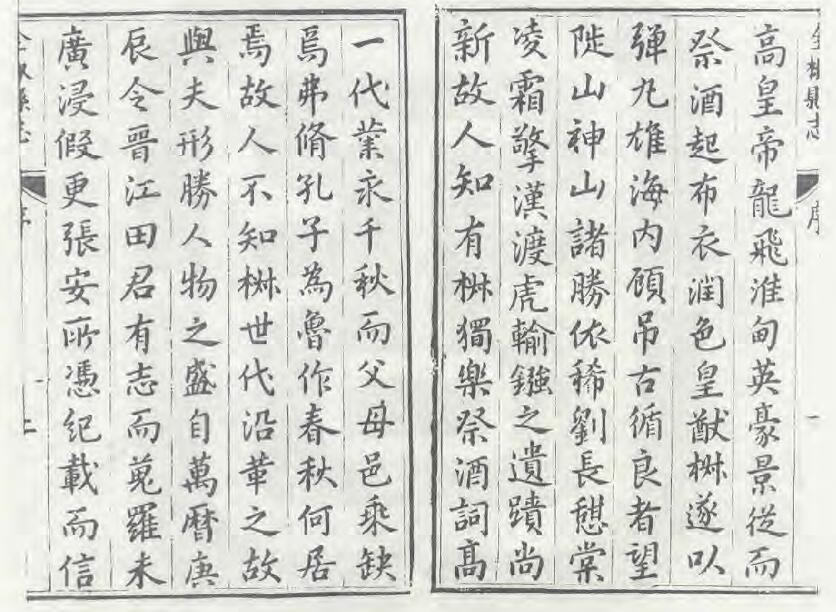 全椒縣志 序 一
高皇帝龍飛淮甸英豪景從而
祭酒起布衣潤色皇猷椒遂以
彈丸雄海内顧吊古循良者望
陡山神山諸勝依稀劉長憇棠
凌霜擎漢渡虎輸鏹之遺蹟尚
新故人知有椒獨樂祭酒詞高
一代業永千秋而父母邑乘缺
焉弗脩孔子為魯作春秋何居
焉故人不知椒世代沿革之故
與夫形勝人物之盛自萬曆庚
辰令晉江田君有志而蒐羅未
廣浸假更張安所憑紀載而信
全椒縣志 序